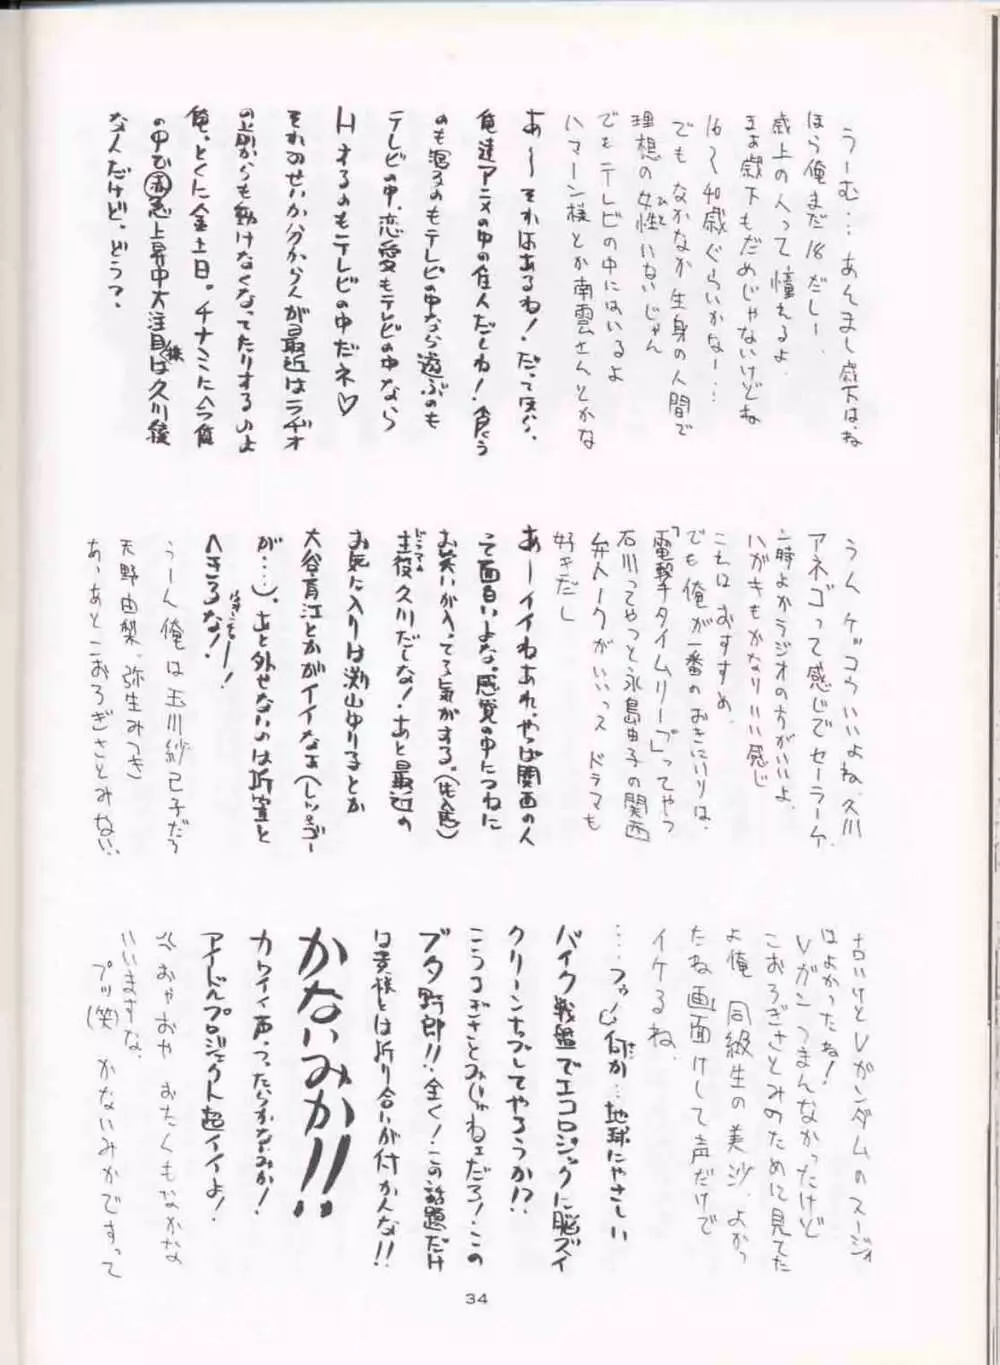 うーむ…あんまし歳下はね
ほら俺まだ18だしー、
歳上の人って憧れるよ
まぁ歳下もだめじゃないけどね
16〜40歳ぐらいかなー…
でも なかなか生身の人間で
理想の女性いないじゃん
ひと
でもテレビの中にはいるよ
ハマーン様とか南雲さんとかな
あ〜〜それはあるね!だってほら、
俺達アニメの中の住人だしね!食う
のも寝るのもテレビの中なら遊ぶのも
テレビの中、恋愛もテレビの中なら
HするのもテレビのA中だネ♡
それのせいか分からんが最近はラヂオ
の前からも動けなくなってたりするのよ
俺。とくに金土日。チナミに今俺
の中で赤丸急上昇中大注目株は久川綾
な人だけど、どうっ?
うん ケッコウいいよね、久川
アネゴって感じでセーラーの
時よかラジオの方がいいよ、
ハガキもかなりいい感じ
これはおすすめ、
でも俺が一番のおきにいりは、
「電撃タイムリープ」ってやつ
石川ってやつと永島由子の関西
弁トークがいいっス ドラマも
好きだし
あーイイねあれ。やっぱ関西の人
って面白いよな。感覚の中につねに
お笑いが入ってる気がする。
主役久川だしな!あと最近の
お気に入りは渕山ゆり子とか
大谷育江とかがイイなぁ
が…)。あと外せないのは折笠と
へきるな!
うーん 俺は玉川紗己子だろ
天野由梨、弥生みつき
あーあとこおろぎさとみない、
古いけどVガンダムのスージィ
はよかったね!
Vガン つまんなかったけど
こおろぎさとみのために見てた
よ俺 同級生の美沙、よかっ
たね画面けして声だけで
イケるね、
…フッ…何か…地球にやさしい
バイク戦艦でエコロジックに脳ズイ
クリーンナップしてやろうか!?
こうろぎさとみじゃねェだろ!この
ブタ野郎!!全く!この話題だけ
は貴様とは折り合いが付かんな!!
かないみか!!
カワイイ声っつったらかないみか!
アイドルプロジェクト超イイよ!
おやおや おたくもなかな
いいますな、
プッ(笑) かないみかですって
34